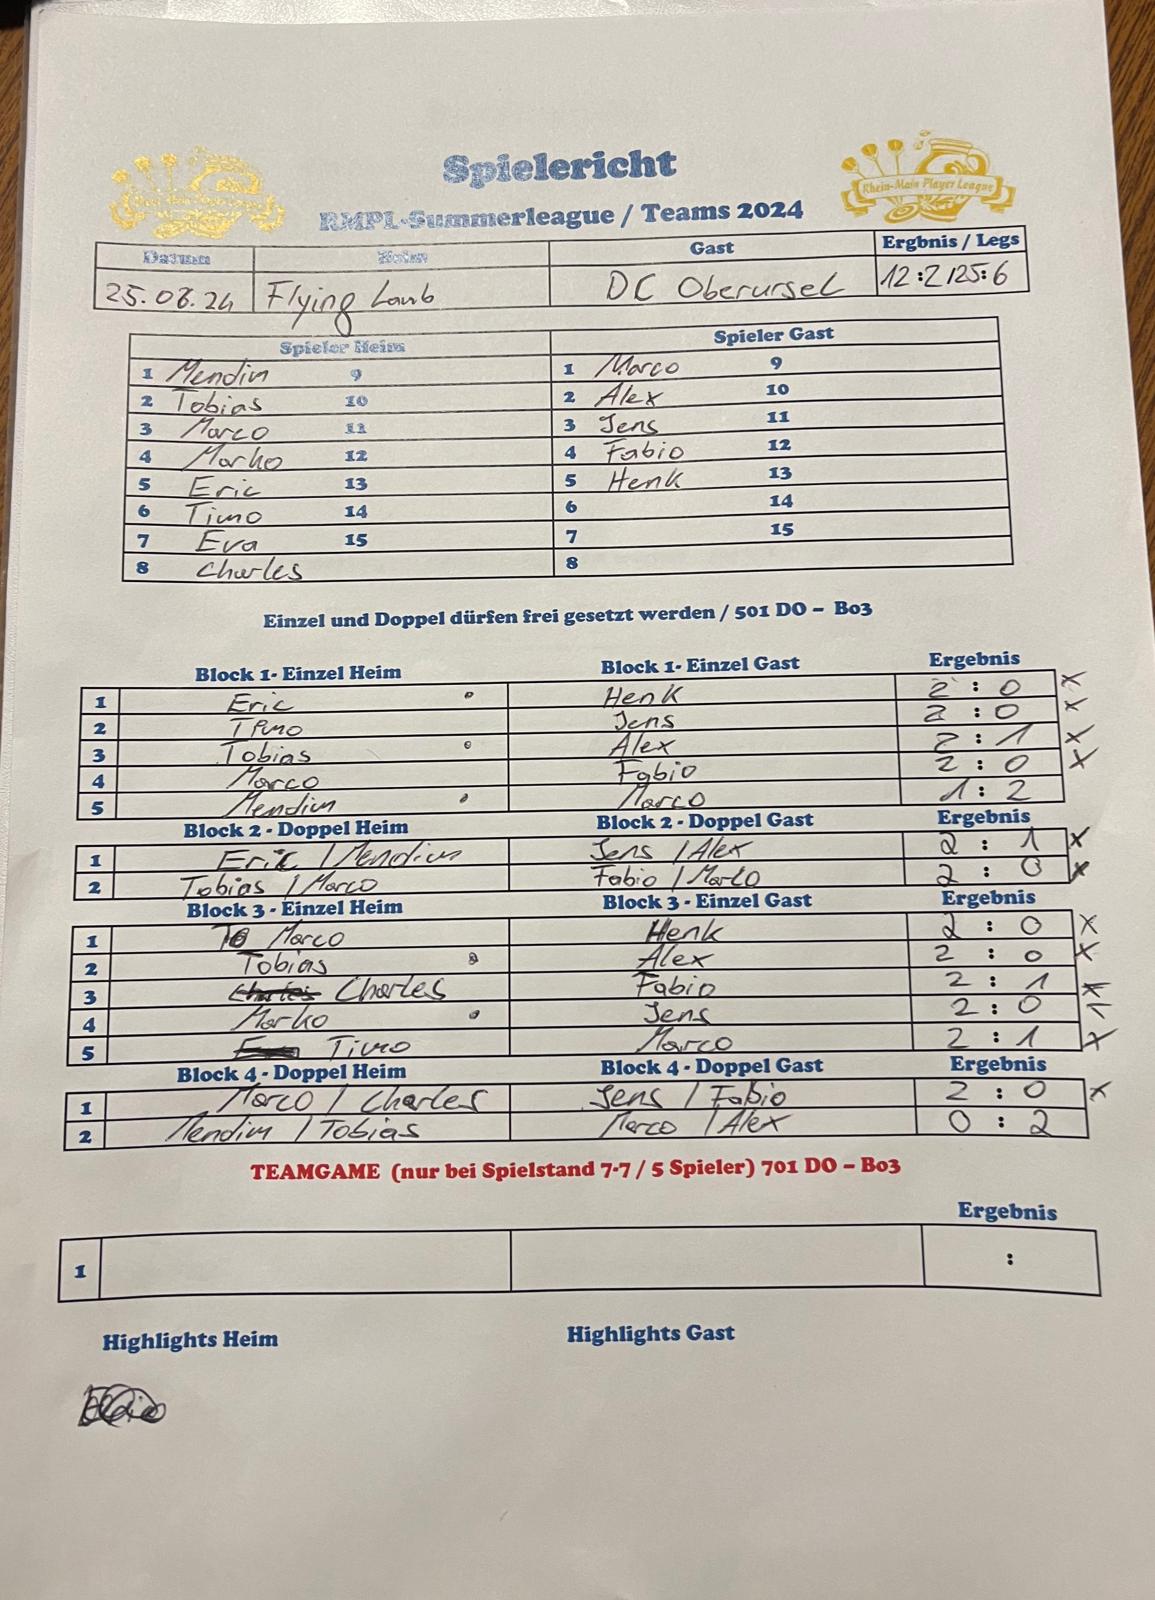 Spielericht
Rhein-Main Player League
RMPL-Summerleague / Teams 2024
Datum Heim Gast Ergbnis / Legs
25.08.24 Flying Laub DC Oberursel 12:2 125:6
Spieler Heim Spieler Gast
1 Mendim 9 1 Marco 9
2 Tobias 10 2 Alex 10
3 Marco 11 3 Jens 11
4 Marko 12 4 Fabio 12
5 Eric 13 5 Henk 13
6 Timo 14 6 14
7 Eva 15 7 15
8 Charles 8
Einzel und Doppel dürfen frei gesetzt werden / 501 DO – Bo3
Block 1- Einzel Heim Block 1- Einzel Gast Ergebnis
1 Eric Henk 2 : 0 x
2 Timo Jens 2 : 0 x
3 Tobias Alex 2 : 1 x
4 Marco Fabio 2 : 0 x
5 Mendim Marco 1 : 2
Block 2 - Doppel Heim Block 2 - Doppel Gast Ergebnis
1 Eric / Mendim Jens / Alex 2 : 1 x
2 Tobias / Marco Fabio / Marco 2 : 0 x
Block 3 - Einzel Heim Block 3 - Einzel Gast Ergebnis
1 Marco Henk 2 : 0 x
2 Tobias Alex 2 : 0 x
3 Charles Charles Fabio 2 : 1 x
4 Marko Jens 2 : 0 x
5 Timo Marco 2 : 1 x
Block 4 - Doppel Heim Block 4 - Doppel Gast Ergebnis
1 Marco / Charles Jens / Fabio 2 : 0 x
2 Mendim / Tobias Marco / Alex 0 : 2
TEAMGAME (nur bei Spielstand 7-7 / 5 Spieler) 701 DO – Bo3
Ergebnis
1 :
Highlights Heim Highlights Gast